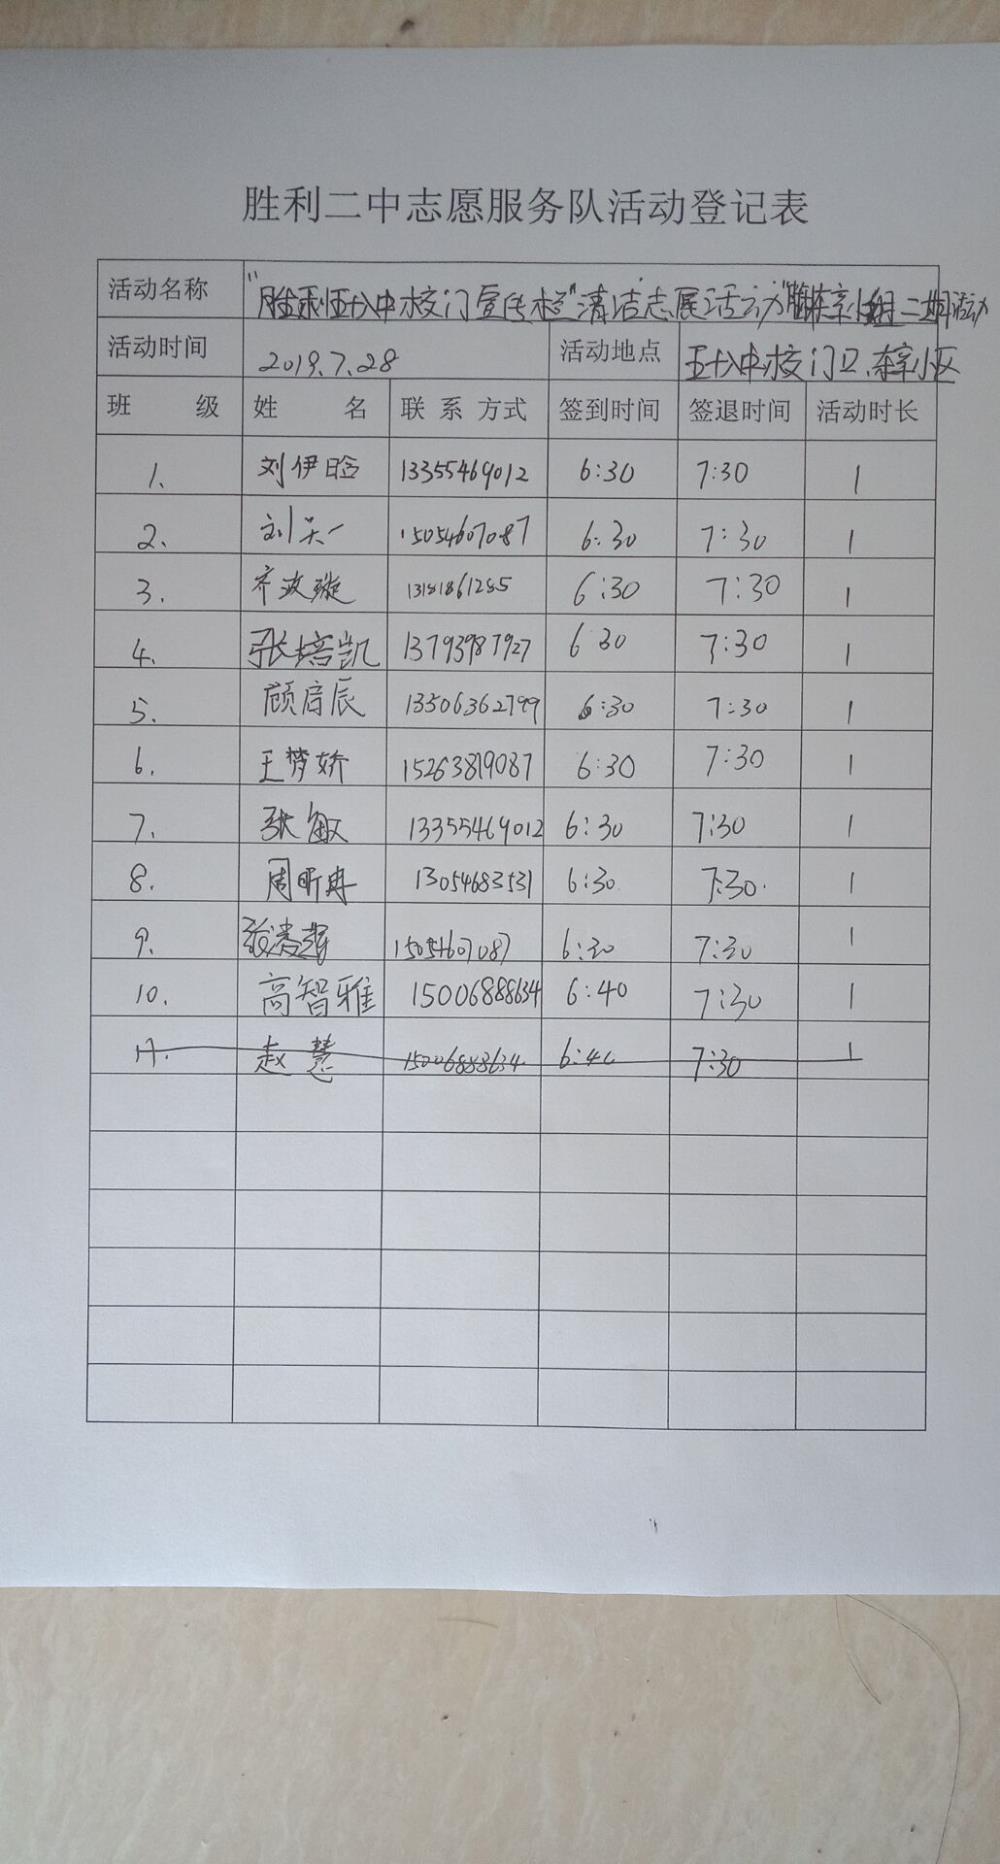 胜利二中志愿服务队活动登记表
活动名称 "胜利五十八中校门宣传栏"清洁志愿活动
活动时间 2019.7.28 活动地点 五十八中校门口、东辛小区
班 级 姓 名 联系方式 签到时间 签退时间 活动时长
1. 刘伊晗 13355469012 6:30 7:30 1
2. 刘昊一 15054607087 6:30 7:30 1
3. 齐汝璇 13181861285 6:30 7:30 1
4. 张培凯 13793987927 6 30 7:30 1
5. 顾启辰 13506362799 6:30 7:30 1
6. 王梦娇 15263819087 6:30 7:30 1
7. 张敏 13355469012 6:30 7:30 1
8. 周昕冉 13054683531 6:30 7:30. 1
9. 15054607087 6:30 7:30 1
10. 高智雅 15006888634 6:40 7:30 1
11. 赵慧 15006888634 6:40 7:30 1